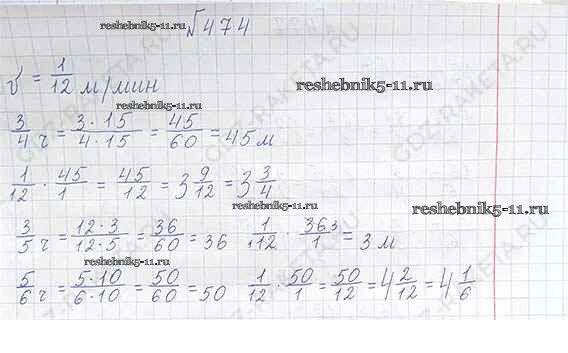 reshebnik5-11.ru №474
v = 1/12 м/мин
reshebnik5-11.ru
reshebnik5-11.ru
3/4 ч = 3·15/4·15 = 45/60 = 45 м
1/12 · 45/1 = 45/12 = 3 9/12 = 3 3/4
reshebnik5-11.ru
reshebnik5-11.ru
3/5 ч = 12·3/12·5 = 36/60 = 36 1/12 · 36 3/1 = 3 м
5/6 ч = 5·10/6·10 = 50/60 = 50 1/12 · 50/1 = 50/12 = 4 2/12 = 4 1/6
GDZ-RAKETA.RU
GDZ-RAKETA.RU